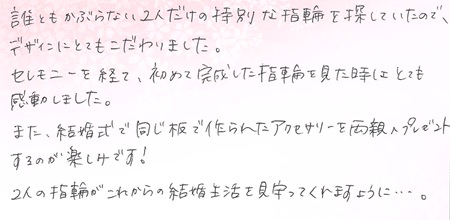 誰ともかぶらない2人だけの特別な指輪を探していたので、
デザインにとてもこだわりました。
セレモニーを経て、初めて完成した指輪を見た時はとても
感動しました。
また、結婚式で同じ板で作られたアクセサリーを両親へプレゼント
するのが楽しみです！
2人の指輪がこれからの結婚生活を見守ってくれますように…。